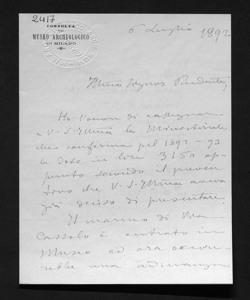 2417
CONSULTA
DEL
MUSEO ARCHEOLOGICO
DI MILANO
6 Luglio 1892
Ho l'onore di
a V. S. Ill.ma la
che conforma pel 1892-93
la dote in lire 3150 ap-
punto secondo il preven-
tivo che V. S. Ill.ma aveva
già deciso di presentare.
Il marmo di Via
è entrato in
Museo ed ora occor-
rebbe una adunanza